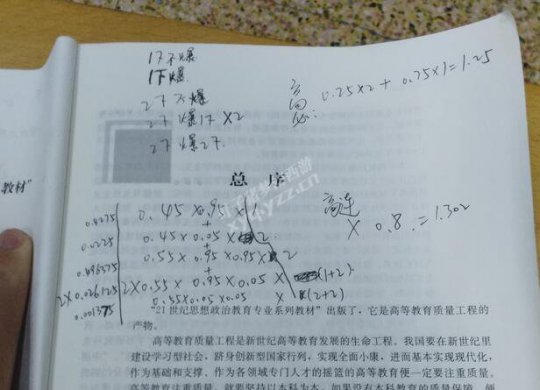 1下不爆
1下爆
2下不爆
2下爆1下 X2
2下爆2下
高回
必: 0.75x2 + 0.25x1=1.25
总 序
教材"
0.4275 0.45 x0.95 x 1
+
0.0225 0.45 x 0.05 x 2
+
0.496375 0.55 x 0.95 x0.95 x 2
+
2x0.026125 2x0.55 x 0.95 x 0.05 x (1+2)
0.001375 0.55x0.05 x0.05 x (2+2)
高连
X 0.8.=1.302
"21世纪思想政治教育专业系列教材"出版了，它是高等教育质量工程的
产物。
高等教育质量工程是新世纪高等教育发展的生命工程。我国要在新世纪里
建设学习型社会、跻身创新型国家行列，实现全面小康，进而基本实现现代化，
作为基础和支撑、作为各领域专门人才的摇篮的高等教育便一定要注重质量。
高等教育注重质量，就要坚持以本科为本。如果没有本科教育的质量保障，便